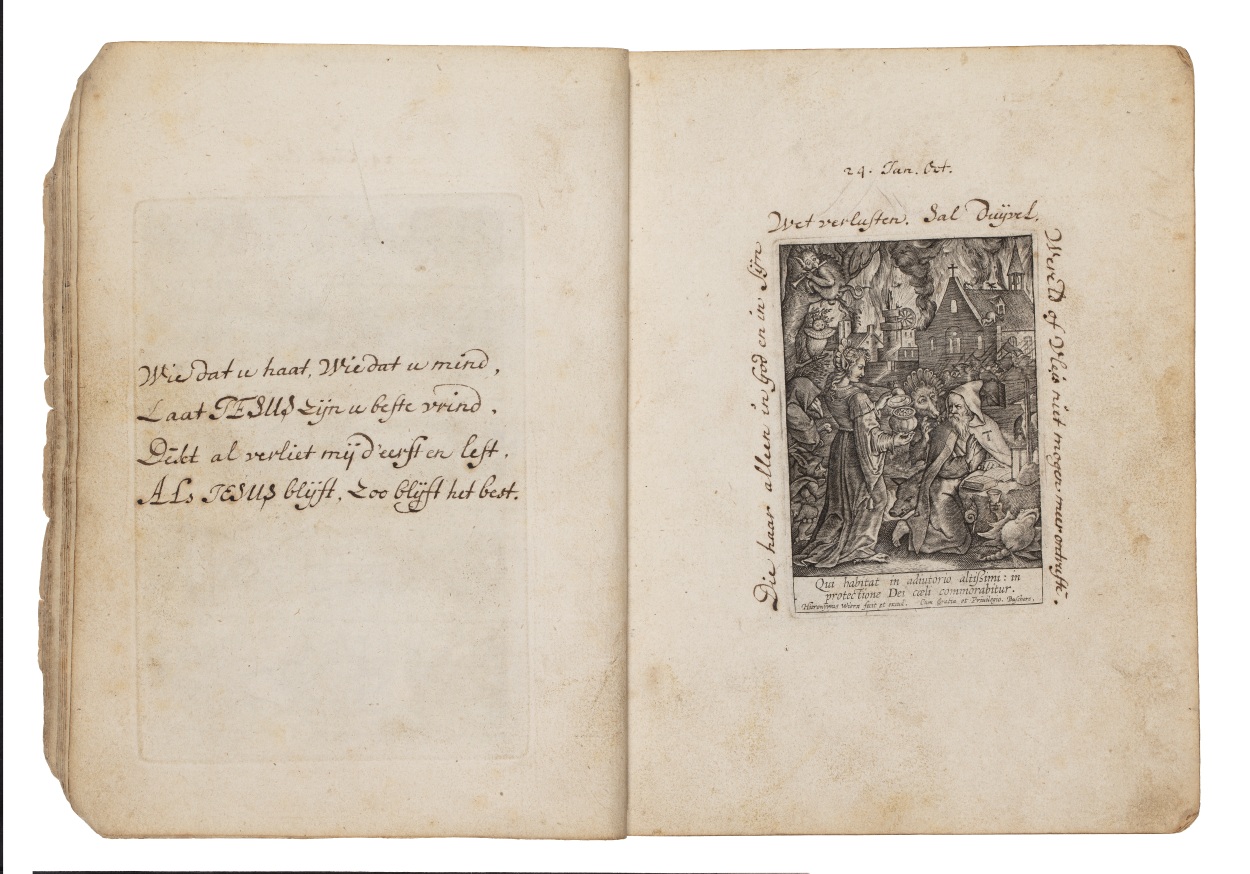 Wie dat u haat, Wie dat u mind,
Laat JESUS zijn u beste vrind.
al verliet mij d'eerst en lest,
ALs JESUS blijft, Zoo blijft het best.
24. Jan. Oct.
Die haar alleen in God en in Sijn
Wet verlusten. Sal Duijvel.
Wereld of Vleis niet mogen meer ontrusten.
Qui habitat in adiutorio altissimi: in
protectione Dei cæli commorabitur.
Hieronymus Wierx fecit et excud. Cum Gratia et Privilegio. Buschere.